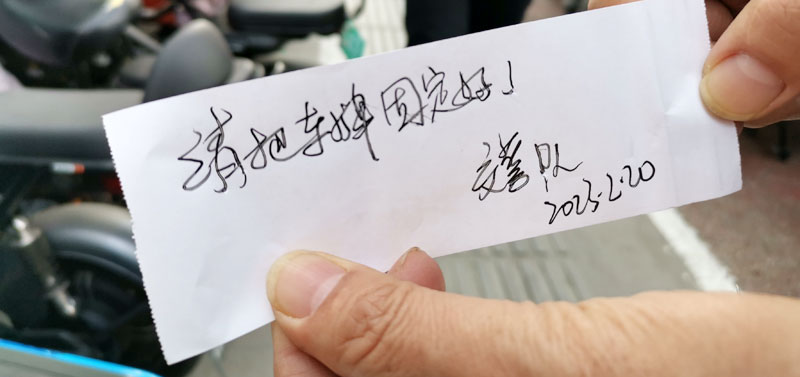 请把车牌固定好！
交警队
2025.2.20